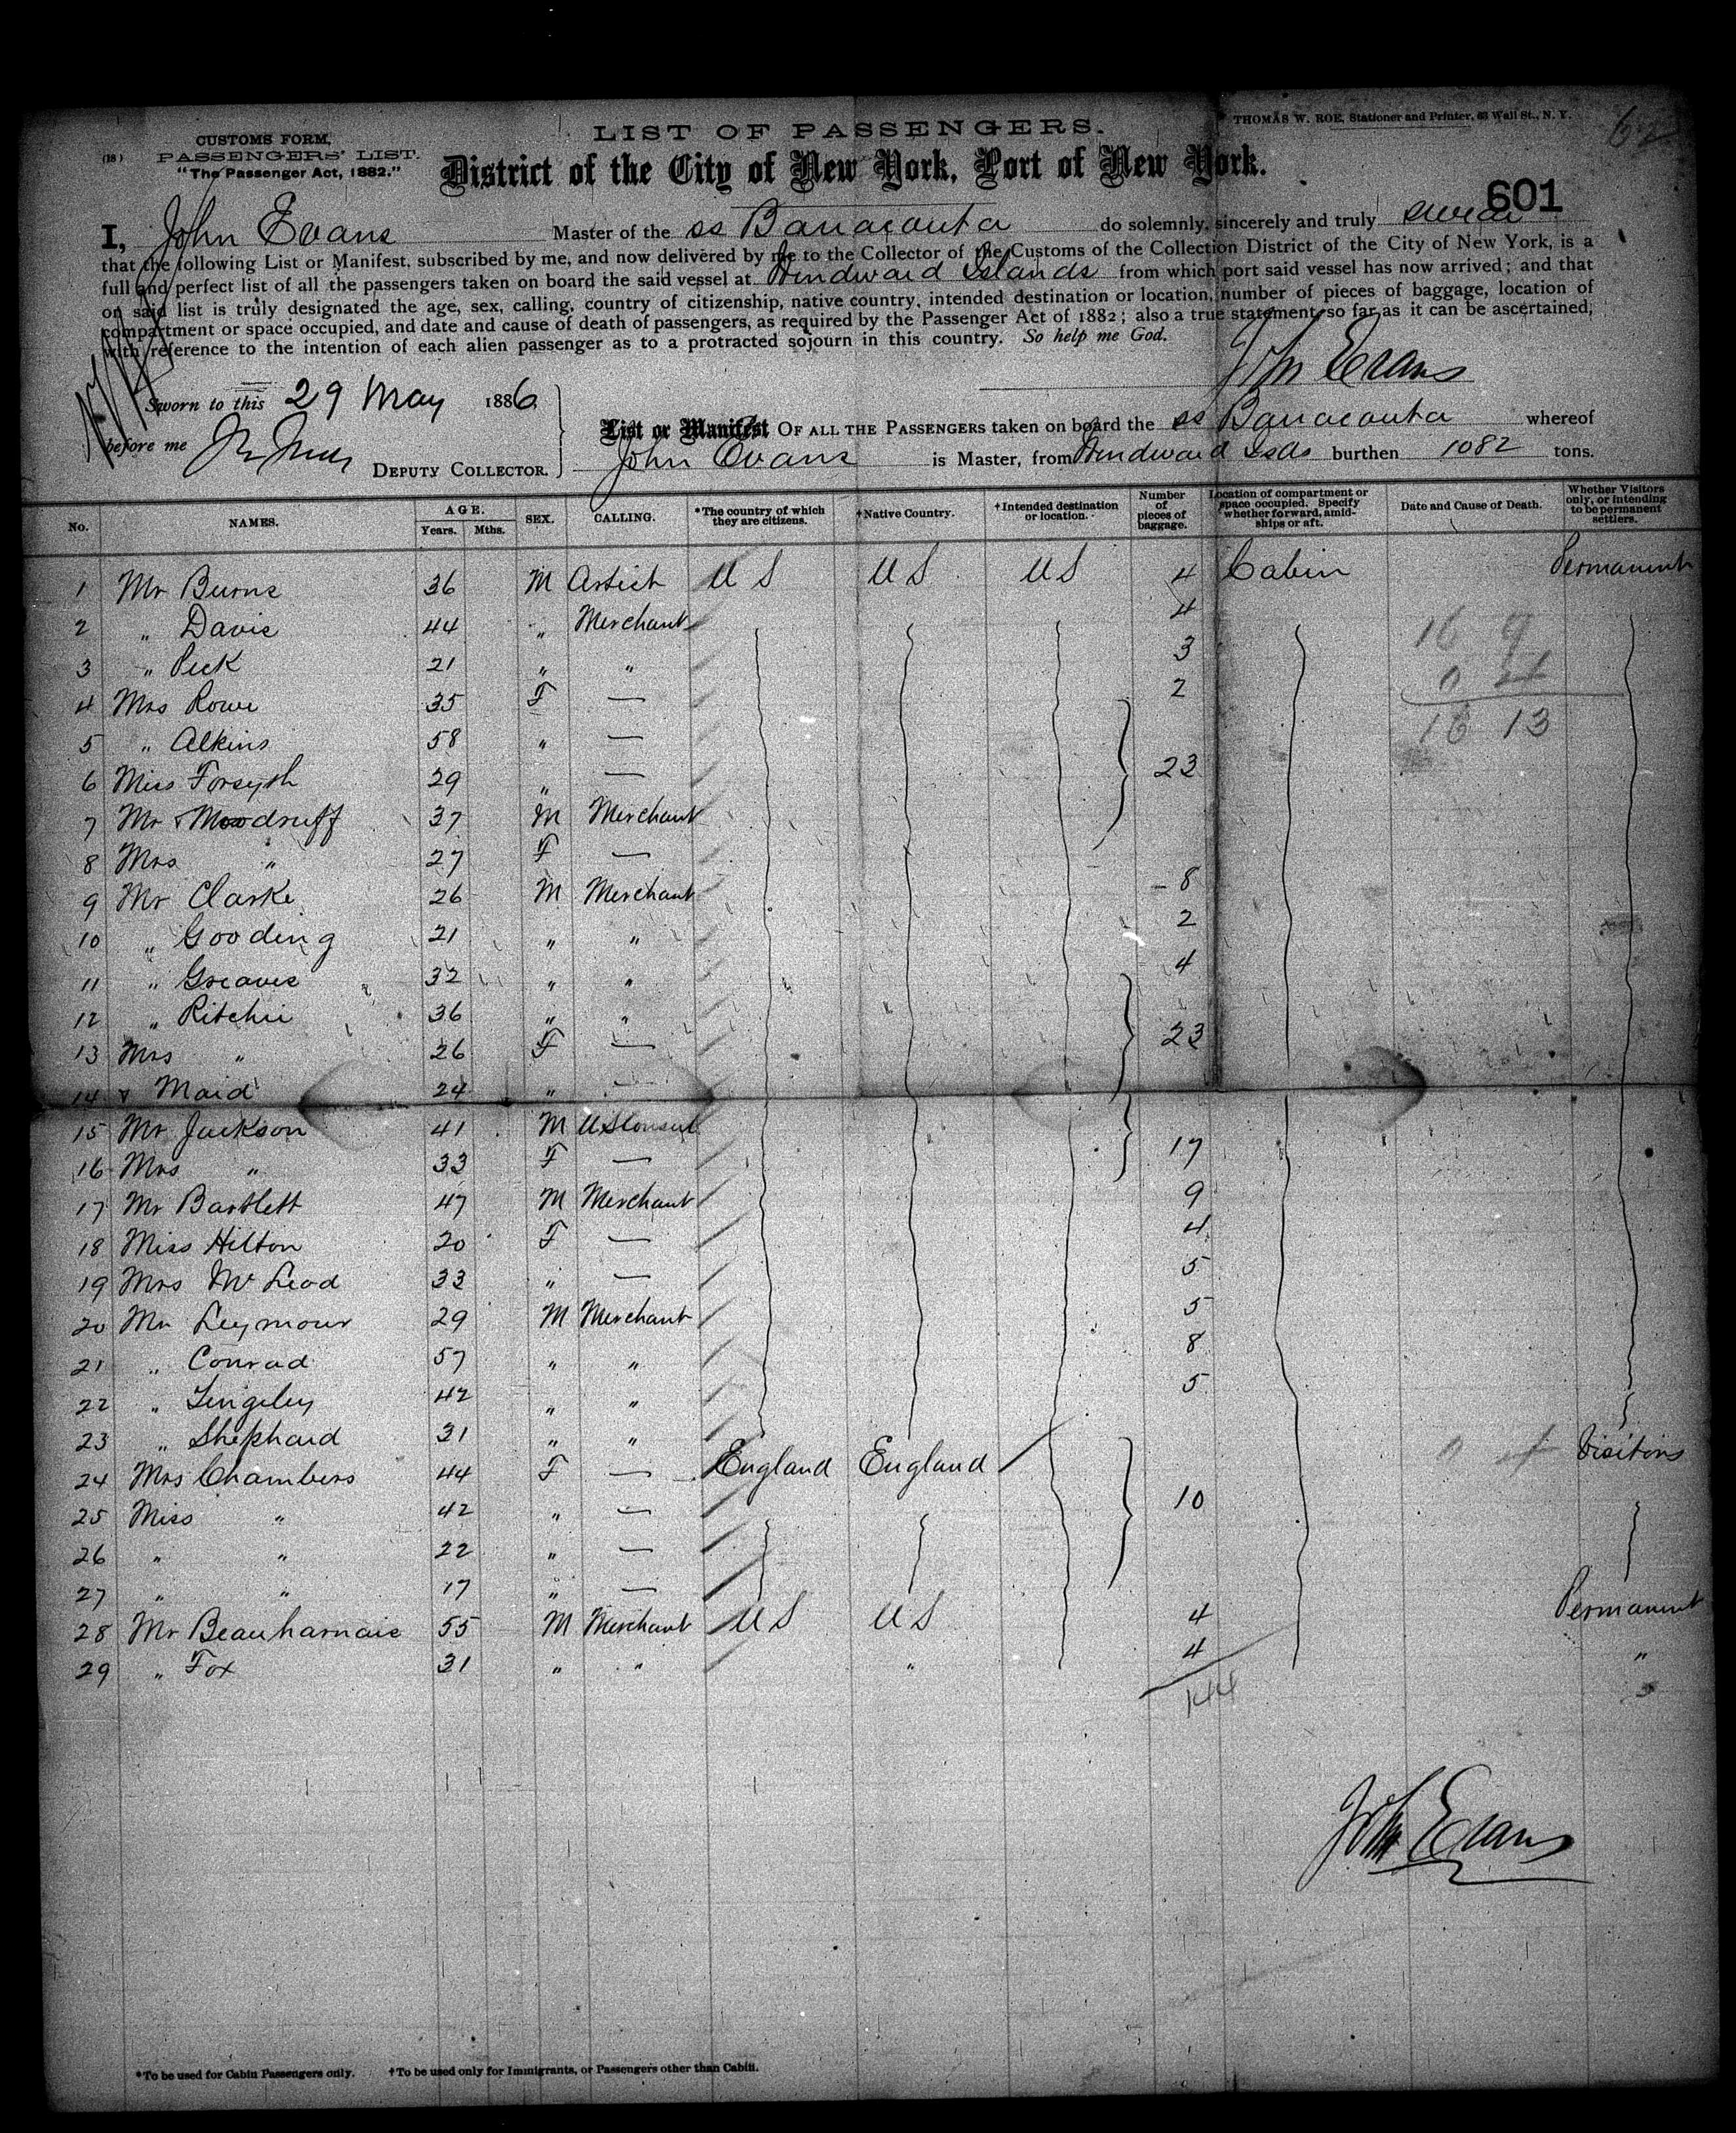 THOMAS W. ROE, Stationer and Printer, 63 Wall St., N. Y.
62
CUSTOMS FORM,
(18) PASSENGERS' LIST.
"The Passenger Act, 1882."
LIST OF PASSENGERS.
District of the City of New York, Port of New York.
601
I, John Evans Master of the ss Banacouta do solemnly, sincerely and truly swear
that the following List or Manifest, subscribed by me, and now delivered by me to the Collector of the Customs of the Collection District of the City of New York, is a
full and perfect list of all the passengers taken on board the said vessel at Windward Islands from which port said vessel has now arrived; and that
on said list is truly designated the age, sex, calling, country of citizenship, native country, intended destination or location, number of pieces of baggage, location of
compartment or space occupied, and date and cause of death of passengers, as required by the Passenger Act of 1882; also a true statement, so far as it can be ascertained,
with reference to the intention of each alien passenger as to a protracted sojourn in this country. So help me God.
John Evans
Sworn to this 29 May 1886,
before me
DEPUTY COLLECTOR.
List or Manifest OF ALL THE PASSENGERS taken on board the ss Banacouta whereof
John Evans is Master, from Windward Isds burthen 1082 tons.
No. NAMES. AGE. Years. Mths. SEX. CALLING. *The country of which they are citizens. †Native Country. †Intended destination or location. Number of pieces of baggage. Location of compartment or space occupied. Specify whether forward, amidships or aft. Date and Cause of Death. Whether Visitors only, or intending to be permanent settlers.
1 Mr Burns 36 M Artist U S U S U S 4 Cabin Permanent
2 " Davis 44 " Merchant 4 16 9
3 " Peck 21 " " 3 0 4
4 Mrs Rowe 35 F — 2 16 13
5 " Alkins 58 " —
6 Miss Forsyth 29 " — 23
7 Mr Woodruff 37 M Merchant
8 Mrs " 27 F —
9 Mr Clarke 26 M Merchant 8
10 " Gooding 21 " " 2
11 " Greaves 32 " " 4
12 " Ritchie 36 " "
13 Mrs " 26 F — 23
14 & Maid 24 " —
15 Mr Jackson 41 M US Consul
16 Mrs " 33 F — 17
17 Mr Bartlett 47 M Merchant 9
18 Miss Hilton 20 F — 4
19 Mrs McLeod 33 " — 5
20 Mr Leymour 29 M Merchant 5
21 " Conrad 57 " " 8
22 " Lingeley 42 " " 5
23 " Shephard 31 " "
24 Mrs Chambers 44 F — England England 0 4 Visitors
25 Miss " 42 " — 10
26 " " 22 " —
27 " " 17 " —
28 Mr Beauharnais 55 M Merchant U S U S 4 Permanent
29 " Fox 31 " " " 4 "
144
John Evans
*To be used for Cabin Passengers only. †To be used only for Immigrants, or Passengers other than Cabin.